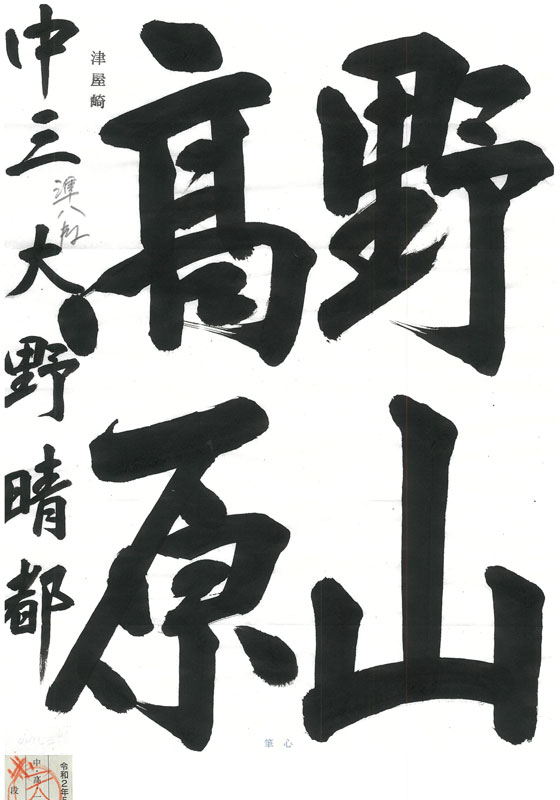 野山
高原
津屋崎
中三 大野晴都
準八段
心筆
令和2年
中・高
段